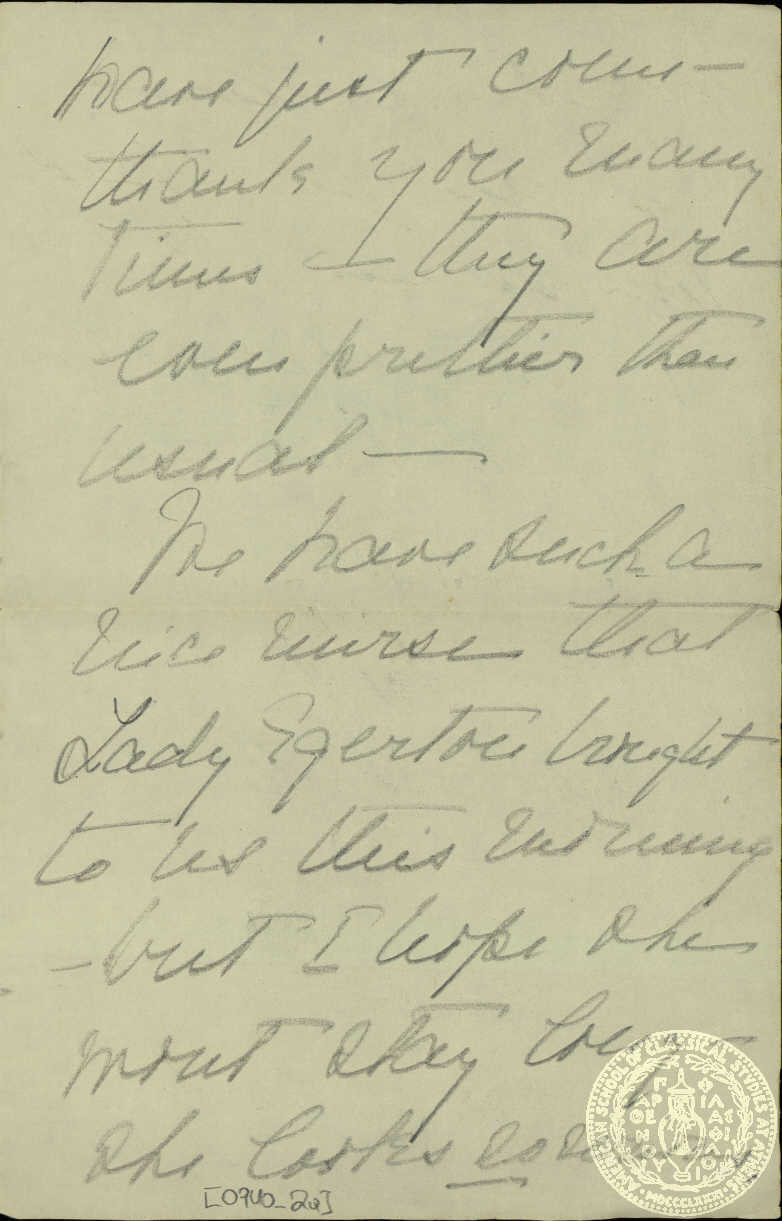 have just come —
thank you many
times — they are
even prettier than
usual —
We have such a
nice nurse that
Lady Egerton brought
to us this morning
— but I hope she
wont stay long —
she looks so
[0940_2a]
AMERICAN SCHOOL OF CLASSICAL STUDIES AT ATHENS
MDCCCLXXXI
ΠΑΡΘΕΝΟΥ
ΦΙΛΑΣ ΦΙΛΑΙ